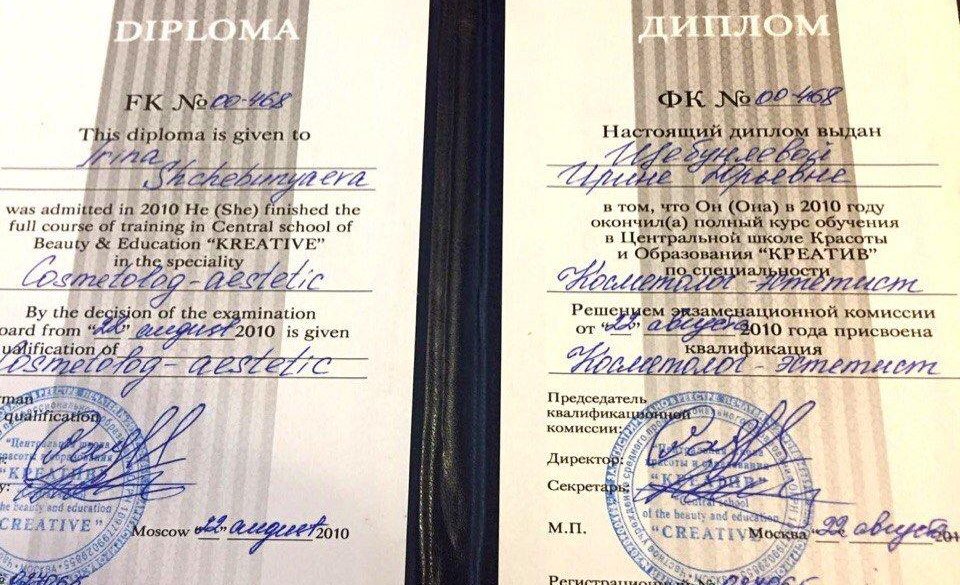 DIPLOMA
FK №00-468
This diploma is given to
Irina
Shchebunyaeva
was admitted in 2010 He (She) finished the
full course of training in Central school of
Beauty & Education "KREATIVE"
in the speciality
Cosmetolog-aestetic
By the decision of the examination
oard from "22" august 2010 is given
ualification of
Cosmetolog-aestetic
rman
qualification
"Центральная школа
красоты и образования
"КРЕАТИВ"
the beauty and education
CREATIVE"
Moscow "22" august 2010
ДИПЛОМ
ФК №00-468
Настоящий диплом выдан
Щебуняевой
Ирине Юрьевне
в том, что Он (Она) в 2010 году
окончил(а) полный курс обучения
в Центральной школе Красоты
и Образования "КРЕАТИВ"
по специальности
Косметолог-эстетист
Решением экзаменационной комиссии
от "22" августа 2010 года присвоена
квалификация
Косметолог-эстетист
Председатель
квалификационной
комиссии:
Директор:
Секретарь:
красоты и образования
"КРЕАТИВ"
school
of the beauty and education
"CREATIVE"
М.П.
Москва "22" августа 201
Регистрационный №